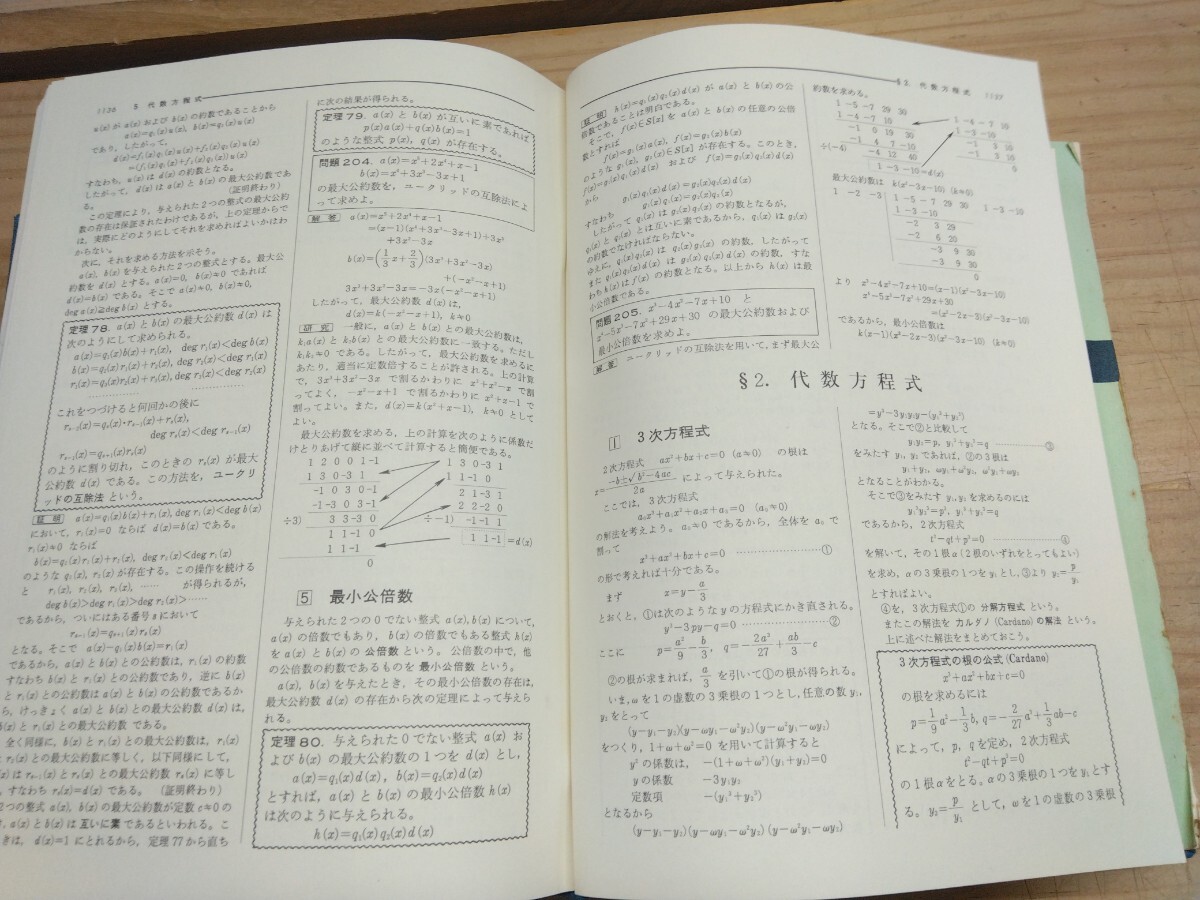 1136 5 代数方程式
u(x) が a(x) および b(x) の約数であることから
a(x)=g₁(x)u(x), b(x)=g₂(x)u(x)
であり，したがって，
d(x)=f₁(x)g₁(x)u(x)+f₂(x)g₂(x)u(x)
=(f₁(x)g₁(x)+f₂(x)g₂(x))u(x)
すなわち，u(x) は d(x) の約数となる。
したがって，d(x) は a(x) と b(x) の最大公約数であ
る。 (証明終わり)
この定理により，与えられた2つの整式の最大公約
数の存在は保証されたわけであるが，上の定理からで
は，実際にどのようにしてそれを求めればよいかはわ
からない。
次に，それを求める方法を示そう。
a(x), b(x) を与えられた2つの整式とする。最大公
約数を d(x) とする。a(x)=0, b(x)≠0 であれば
d(x)=b(x) である。そこで a(x)≠0, b(x)≠0,
deg a(x)≧deg b(x) とする。
定理 78. a(x) と b(x) の最大公約数 d(x) は
次のようにして求められる。
a(x)=q₁(x)b(x)+r₁(x), deg r₁(x)<deg b(x)
b(x)=q₂(x)r₁(x)+r₂(x), deg r₂(x)<deg r₁(x)
r₁(x)=q₃(x)r₂(x)+r₃(x), deg r₃(x)<deg r₂(x)
……………
これをつづけると何回かの後に
rₙ₋₂(x)=qₙ(x)·rₙ₋₁(x)+rₙ(x),
deg rₙ(x)<deg rₙ₋₁(x)
rₙ₋₁(x)=qₙ₊₁(x)rₙ(x)
のように割り切れ，このときの rₙ(x) が最大
公約数 d(x) である。この方法を，ユークリ
ッドの互除法 という。
証明 a(x)=q₁(x)b(x)+r₁(x), deg r₁(x)<deg b(x)
において，r₁(x)=0 ならば d(x)=b(x) である。
r₁(x)≠0 ならば
b(x)=q₂(x)r₁(x)+r₂(x), deg r₂(x)<deg r₁(x)
のような q₂(x), r₂(x) が存在する。この操作を続ける
と r₁(x), r₂(x), r₃(x), …… が得られるが，
deg b(x)>deg r₁(x)>deg r₂(x)>……
であるから，ついにはある番号 n において
rₙ₋₁(x)=qₙ₊₁(x)rₙ(x)
となる。そこで a(x)−q₁(x)b(x)=r₁(x)
であるから，a(x) と b(x) との公約数は，r₁(x) の約数
すなわち b(x) と r₁(x) との公約数であり，逆に b(x)
と r₁(x) との公約数は a(x) と b(x) の公約数であるか
ら，けっきょく a(x) と b(x) との最大公約数 d(x) は，
b(x) と r₁(x) との最大公約数 である。
全く同様に，b(x) と r₁(x) との最大公約数は，r₁(x)
と r₂(x) との最大公約数に等しく，以下同様にして，
d(x) は rₙ₋₁(x) と rₙ(x) との最大公約数 rₙ(x) に等し
，すなわち rₙ(x)=d(x) である。 (証明終わり)
2つの整式 a(x), b(x) の最大公約数が定数 c≠0 の
，a(x) と b(x) は 互いに素 であるといわれる。こ
きは，d(x)=1 にとれるから，定理77から直ち
に次の結果が得られる。
定理 79. a(x) と b(x) が互いに素であれば
p(x)a(x)+q(x)b(x)=1
のような整式 p(x), q(x) が存在する。
問題 204. a(x)=x⁵+2x⁴+x−1
b(x)=x⁴+3x³−3x+1
の最大公約数を，ユークリッドの互除法によ
って求めよ。
解答 a(x)=x⁵+2x⁴+x−1
=(x−1)(x⁴+3x³−3x+1)+3x³
+3x²−3x
b(x)=(1/3 x+2/3)(3x³+3x²−3x)
+(−x²−x+1)
3x³+3x²−3x=−3x(−x²−x+1)
したがって，最大公約数 d(x) は，
d(x)=k(−x²−x+1), k≠0
研究 一般に，a(x) と b(x) との最大公約数は，
k₁a(x) と k₂b(x) との最大公約数に一致する。ただし
k₁k₂≠0 である。したがって，最大公約数を求めるに
あたり，適当に定数倍することが許される。上の計算
で，3x³+3x²−3x で割るかわりに x³+x²−x で割
ってよく，−x²−x+1 で割るかわりに x²+x−1 で
割ってよい。また，d(x)=k(x²+x−1), k≠0 として
よい。
最大公約数を求める，上の計算を次のように係数だ
けとりあげて縦に並べて計算すると簡便である。
1 2 0 0 1 -1 1 3 0 -3 1
1 3 0 -3 1 1 1 -1 0
-1 0 3 0 -1 2 1 -3 1
-1 -3 0 3 -1 2 2 -2 0
÷3) 3 3 -3 0 ÷−1) -1 -1 1
1 1 -1 0 1 1 -1 =d(x)
1 1 -1
0
5 最小公倍数
与えられた2つの0でない整式 a(x), b(x) について，
a(x) の倍数でもあり，b(x) の倍数でもある整式 h(x)
を a(x) と b(x) の 公倍数 という。公倍数の中で，他
の公倍数の約数であるものを 最小公倍数 という。
a(x), b(x) を与えたとき，その最小公倍数の存在は，
最大公約数 d(x) の存在から次の定理によって与えら
れる。
定理 80. 与えられた0でない整式 a(x) お
よび b(x) の最大公約数の1つを d(x) とし，
a(x)=q₁(x)d(x), b(x)=q₂(x)d(x)
とすれば，a(x) と b(x) の最小公倍数 h(x)
は次のように与えられる。
h(x)=q₁(x)q₂(x)d(x)
§2. 代数方程式 1137
証明 h(x)=q₁(x)q₂(x)d(x) が a(x) と b(x) の公
倍数であることは明白である。
そこで，f(x)∈S[x] を a(x) と b(x) の任意の公倍
数とすれば
f(x)=g₁(x)a(x), f(x)=g₂(x)b(x)
のような g₁(x), g₂(x)∈S[x] が存在する。このとき，
f(x)=g₁(x)q₁(x)d(x) および f(x)=g₂(x)q₂(x)d(x)
から
g₁(x)q₁(x)d(x)=g₂(x)q₂(x)d(x)
すなわち g₁(x)q₁(x)=g₂(x)q₂(x)
したがって q₁(x) は g₂(x)q₂(x) の約数となるが，
q₁(x) と q₂(x) とは互いに素であるから，q₁(x) は g₂(x)
の約数でなければならない。
ゆえに，q₁(x)q₂(x) は g₂(x)q₂(x) の約数，したがって
また q₁(x)q₂(x)d(x) は g₂(x)q₂(x)d(x) の約数，すな
わち h(x) は f(x) の約数となる。以上から h(x) は最
小公倍数である。
問題 205. x⁴−4x³−7x+10 と
x⁴−5x³−7x²+29x+30 の最大公約数および
最小公倍数を求めよ。
解答 ユークリッドの互除法を用いて，まず最大公
約数を求める。
1 -5 -7 29 30
1 -4 -7 10
1 -4 -7 10
1 -3 -10
-1 0 19 30
-1 3 10
-1 4 7 -10
-1 3 10
÷(−4) -4 12 40
0
1 -3 -10=d(x)
最大公約数は k(x²−3x−10) (k≠0)
1 -2 -3 1 -5 -7 29 30 1 -3 -10
1 -3 -10
-2 3 29
-2 6 20
-3 9 30
-3 9 30
0
より x³−4x²−7x+10=(x−1)(x²−3x−10)
x⁴−5x³−7x²+29x+30
=(x²−2x−3)(x²−3x−10)
であるから，最小公倍数は
k(x−1)(x²−2x−3)(x²−3x−10) (k≠0)
§2. 代数方程式
1 3次方程式
2次方程式 ax²+bx+c=0 (a≠0) の根は
x=(−b±√b²−4ac)/2a によって与えられた。
ここでは，3次方程式
a₀x³+a₁x²+a₂x+a₃=0 (a₀≠0)
の解法を考えよう。a₀≠0 であるから，全体を a₀ で
割って
x³+ax²+bx+c=0 ……………①
の形で考えれば十分である。
まず x=y−a/3
とおくと，①は次のような y の方程式にかき直される。
y³−3py−q=0 ……………②
ここに p=a²/9−b/3, q=−2a³/27+ab/3−c
②の根が求まれば，a/3 を引いて①の根が得られる。
いま，ω を1の虚数の3乗根の1つとし，任意の数 y₁,
y₂ をとって
(y−y₁−y₂)(y−ωy₁−ω²y₂)(y−ω²y₁−ωy₂)
をつくり，1+ω+ω²=0 を用いて計算すると
y² の係数は，−(1+ω+ω²)(y₁+y₂)=0
y の係数 −3y₁y₂
定数項 −(y₁³+y₂³)
となるから
(y−y₁−y₂)(y−ωy₁−ω²y₂)(y−ω²y₁−ωy₂)
=y³−3y₁y₂y−(y₁³+y₂³)
となる。そこで②と比較して
y₁y₂=p, y₁³+y₂³=q ……………③
をみたす y₁, y₂ であれば，②の3根は
y₁+y₂, ωy₁+ω²y₂, ω²y₁+ωy₂
となることがわかる。
そこで③をみたす y₁, y₂ を求めるのには
y₁³y₂³=p³, y₁³+y₂³=q
であるから，2次方程式
t²−qt+p³=0 ……………④
を解いて，その1根 α (2根のいずれをとってもよい)
を求め，α の3乗根の1つを y₁ とし，③より y₂=p/y₁
とすればよい。
④を，3次方程式①の 分解方程式 という。
またこの解法を カルダノ (Cardano) の解法 という。
上に述べた解法をまとめておこう。
3次方程式の根の公式 (Cardano)
x³+ax²+bx+c=0
の根を求めるには
p=1/9 a²−1/3 b, q=−2/27 a³+1/3 ab−c
によって，p, q を定め，2次方程式
t²−qt+p³=0
の1根 α をとる。α の3乗根の1つを y₁ とす
る。y₂=p/y₁ として，ω を1の虚数の3乗根